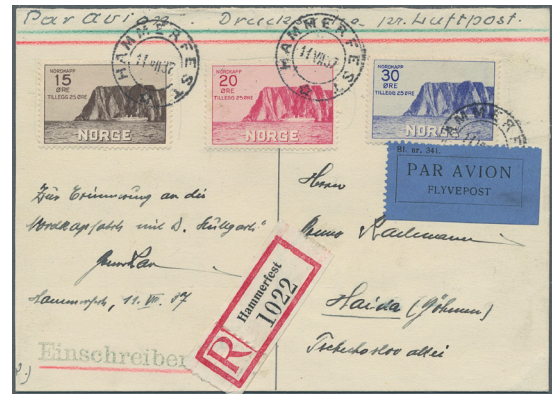 Par Avion. Drucksache per Luftpost.
HAMMERFEST
11 VII 37
HAMMERFEST
11 VII 37
12
HAMMERF
NORDKAPP
15
ØRE
TILLEGG 25 ØRE
NORGE
NORDKAPP
20
ØRE
TILLEGG 25 ØRE
NORGE
NORDKAPP
30
ØRE
TILLEGG 25 ØRE
NORGE
Bl. nr. 341.
PAR AVION
FLYVEPOST
Zur Erinnerung an die
Nordkapfahrt mit D.
Hammerfest, 11. VII. 37
R
Hammerfest
1022
Einschreiben
Herrn
Haida (Böhmen)
Tschechoslovakei